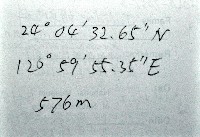 24° 04' 32.65" N
120° 59' 55.35" E
576m